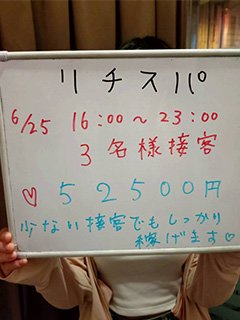 リチスパ
6/25 16:00～23:00
3名様接客
♡ 52500円
少ない接客でもしっかり
稼げます♡